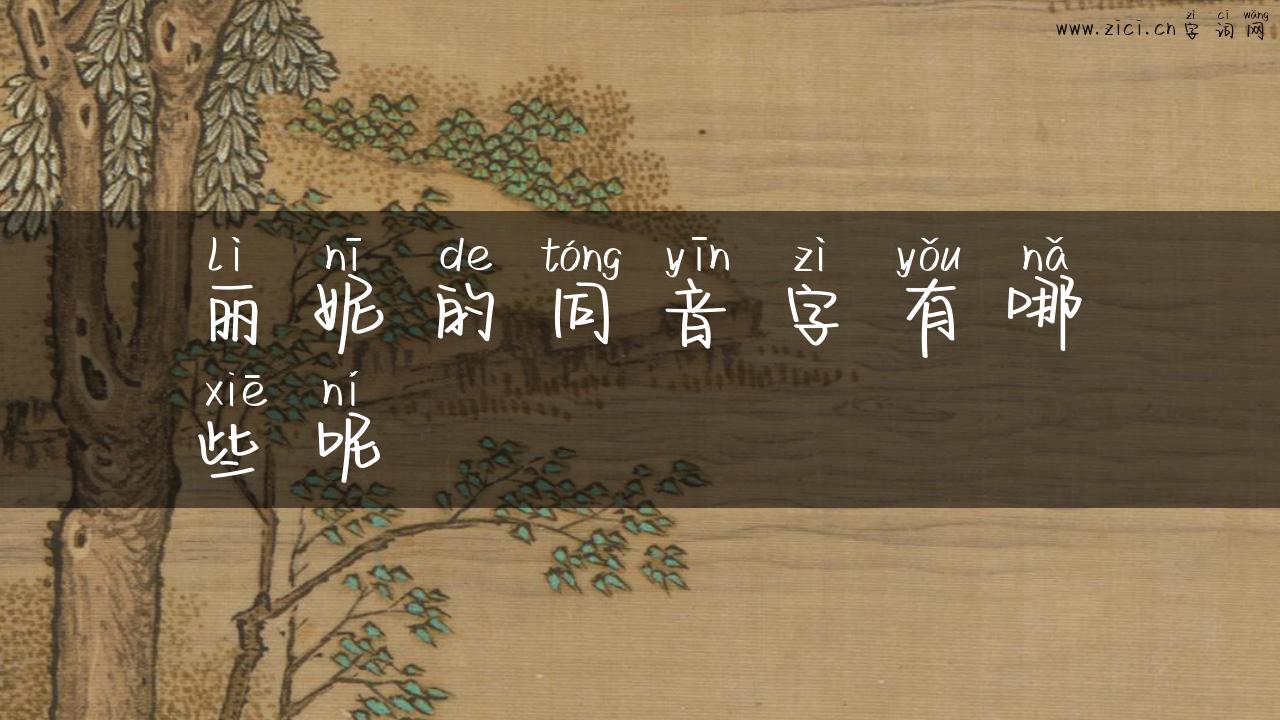 zì cí wǎng
www.zici.cn 字词网
lì nī de tóng yīn zì yǒu nǎ
丽妮的同音字有哪
xiē ní
些呢